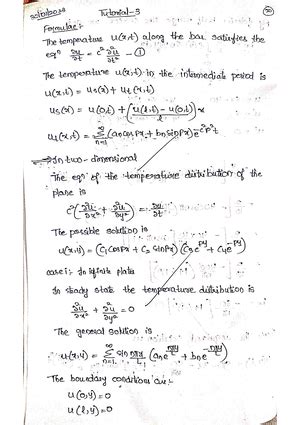 Tutorial-3
Formulae:-
The temperature u(x,t) along the bar satisfies the
eqn ∂u/∂t = c² ∂²u/∂x² - ①
The temperature u(x,t) in the intermediate period is
u(x,t) = us(x) + ut(x,t)
us(x) = u(0,t) + (u(l,t) - u(0,t) / l) x
ut(x,t) = ∞Σn=1 (an cos Px + bn sin Px) e^-c²p²t
In two-dimensional
The eqn of the temperature distribution of the
plane is
c² (∂²u/∂x² + ∂²u/∂y²) = ∂u/∂t
The possible solution is
u(x,y) = (C1 cos Px + C2 sin Px) (C3 e^Py + C4 e^-Py)
case i: Infinite plate
In steady state the temperature distribution is
∂²u/∂x² + ∂²u/∂y² = 0
The general solution is
u(x,y) = ∞Σn=1 sin nπx/l (an e^nπy/l + bn e^-nπy/l)
The boundary condition are:-
u(0,y) = 0
u(l,y) = 0